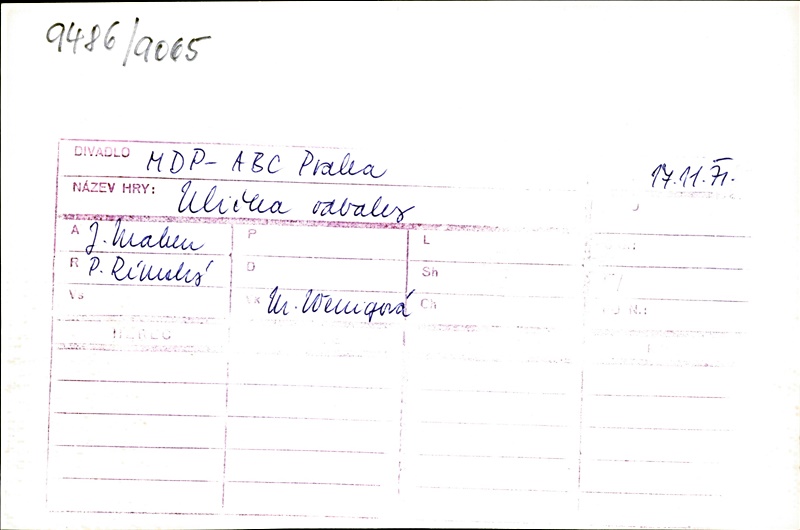 9486/9065
DIVADLO MDP - ABC Praha 17.11.71.
NÁZEV HRY: Ulička odvahy
A J. Mahen P L
R P. Rímský D Sh
Vs Vk M. Wenigová Ch
HEREC